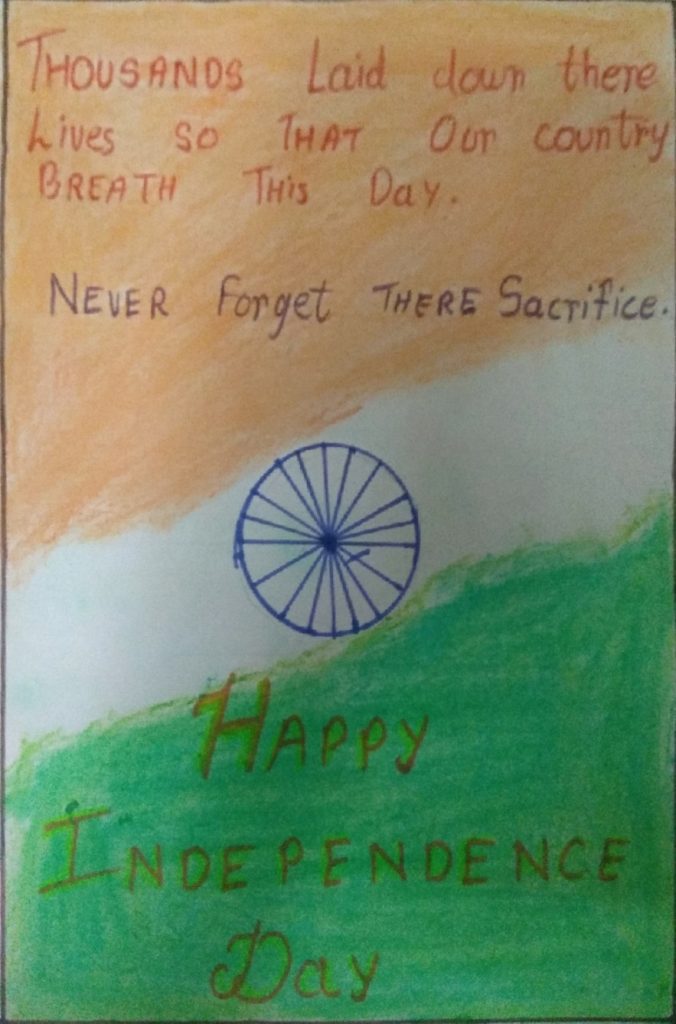 THOUSANDS Laid down there
Lives so THAT Our country
BREATH THis Day.
NEVER Forget THERE Sacrifice.
HAPPY
INDEPENDENCE
Day